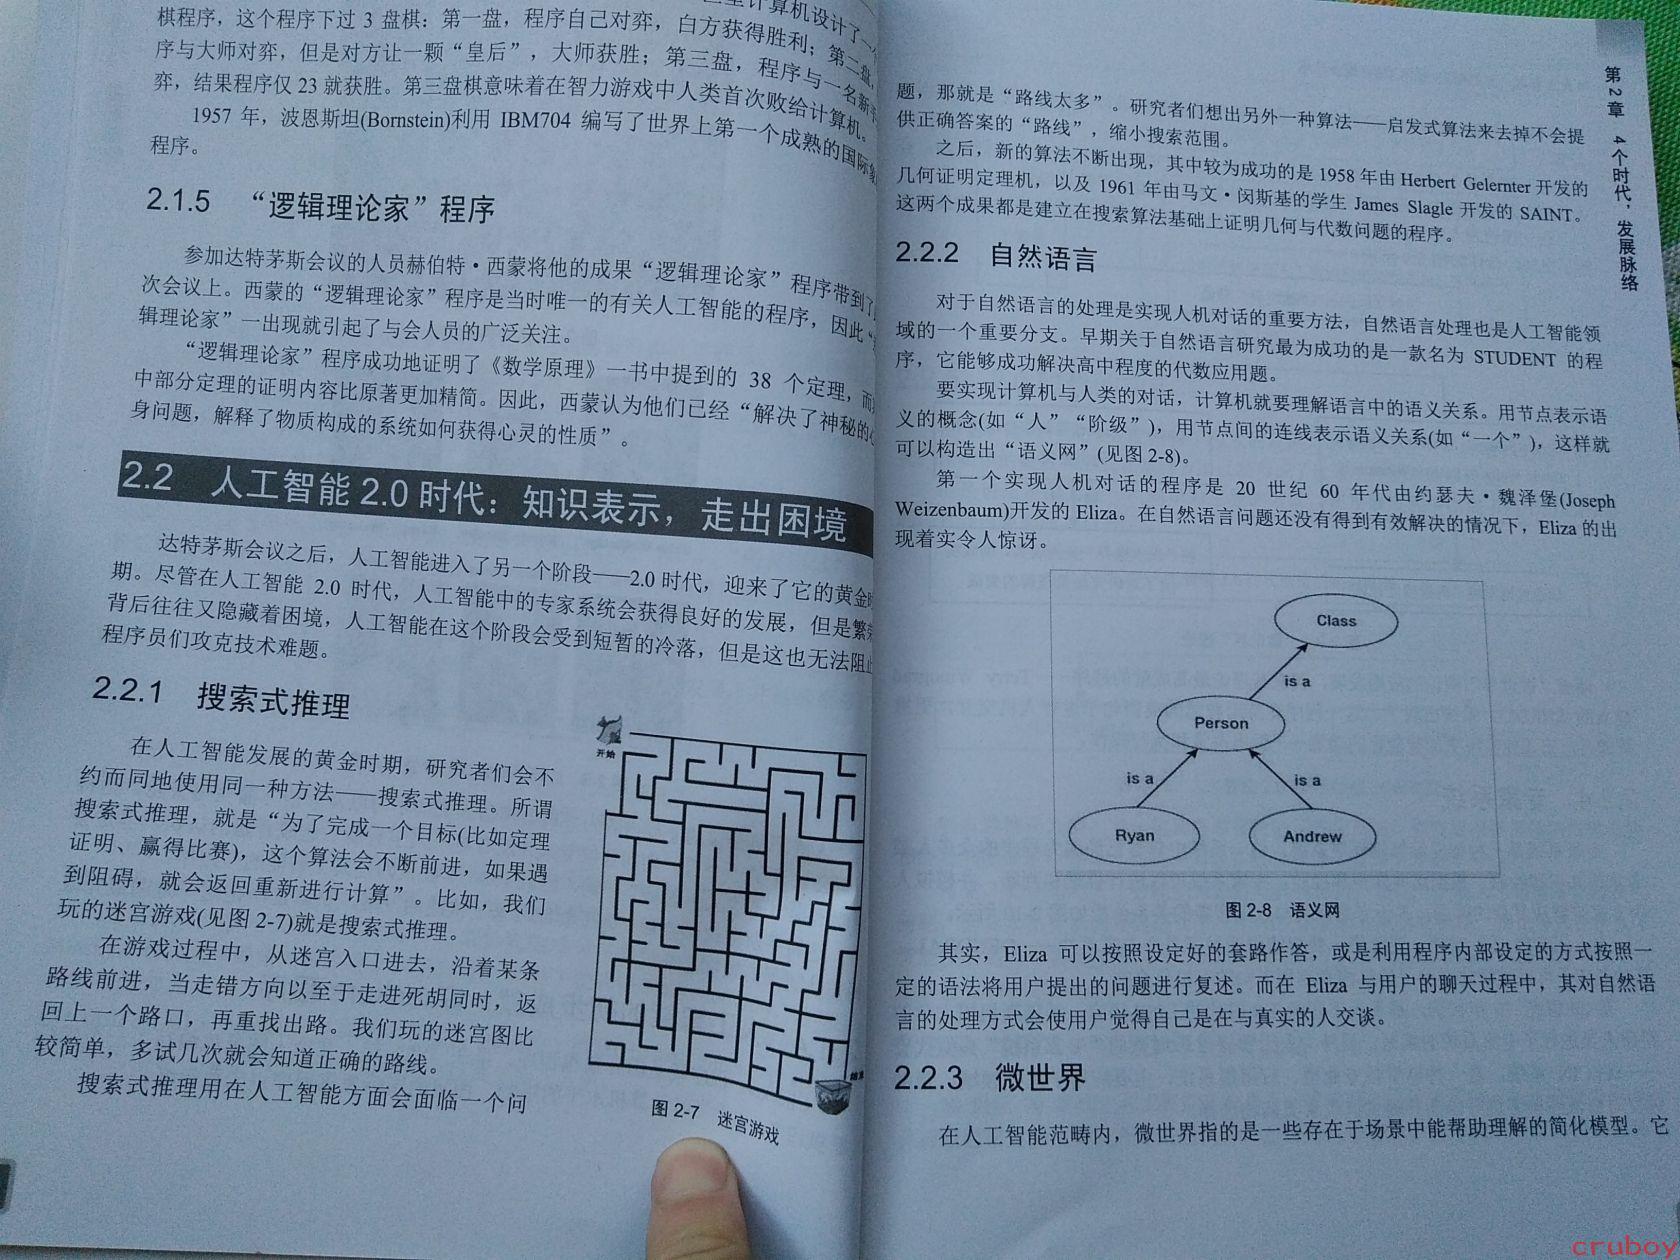 计算机设计了一
棋程序，这个程序下过 3 盘棋：第一盘，程序自己对弈，白方获得胜利；第二盘，
序与大师对弈，但是对方让一颗“皇后”，大师获胜；第三盘，程序与一名新手
弈，结果程序仅 23 就获胜。第三盘棋意味着在智力游戏中人类首次败给计算机。
1957 年，波恩斯坦(Bornstein)利用 IBM704 编写了世界上第一个成熟的国际象
程序。
2.1.5 “逻辑理论家”程序
参加达特茅斯会议的人员赫伯特·西蒙将他的成果“逻辑理论家”程序带到了
次会议上。西蒙的“逻辑理论家”程序是当时唯一的有关人工智能的程序，因此“
辑理论家”一出现就引起了与会人员的广泛关注。
“逻辑理论家”程序成功地证明了《数学原理》一书中提到的 38 个定理，而
中部分定理的证明内容比原著更加精简。因此，西蒙认为他们已经“解决了神秘的心
身问题，解释了物质构成的系统如何获得心灵的性质”。
2.2 人工智能 2.0 时代：知识表示，走出困境
达特茅斯会议之后，人工智能进入了另一个阶段——2.0 时代，迎来了它的黄金时
期。尽管在人工智能 2.0 时代，人工智能中的专家系统会获得良好的发展，但是繁荣
背后往往又隐藏着困境，人工智能在这个阶段会受到短暂的冷落，但是这也无法阻止
程序员们攻克技术难题。
2.2.1 搜索式推理
在人工智能发展的黄金时期，研究者们会不
约而同地使用同一种方法——搜索式推理。所谓
搜索式推理，就是“为了完成一个目标(比如定理
证明、赢得比赛)，这个算法会不断前进，如果遇
到阻碍，就会返回重新进行计算”。比如，我们
玩的迷宫游戏(见图 2-7)就是搜索式推理。
在游戏过程中，从迷宫入口进去，沿着某条
路线前进，当走错方向以至于走进死胡同时，返
回上一个路口，再重找出路。我们玩的迷宫图比
较简单，多试几次就会知道正确的路线。
搜索式推理用在人工智能方面会面临一个问
开始
图 2-7 迷宫游戏
第 2 章 4 个时代，发展脉络
题，那就是“路线太多”。研究者们想出另外一种算法——启发式算法来去掉不会提
供正确答案的“路线”，缩小搜索范围。
之后，新的算法不断出现，其中较为成功的是 1958 年由 Herbert Gelernter 开发的
几何证明定理机，以及 1961 年由马文·闵斯基的学生 James Slagle 开发的 SAINT。
这两个成果都是建立在搜索算法基础上证明几何与代数问题的程序。
2.2.2 自然语言
对于自然语言的处理是实现人机对话的重要方法，自然语言处理也是人工智能领
域的一个重要分支。早期关于自然语言研究最为成功的是一款名为 STUDENT 的程
序，它能够成功解决高中程度的代数应用题。
要实现计算机与人类的对话，计算机就要理解语言中的语义关系。用节点表示语
义的概念(如“人”“阶级”)，用节点间的连线表示语义关系(如“一个”)，这样就
可以构造出“语义网”(见图 2-8)。
第一个实现人机对话的程序是 20 世纪 60 年代由约瑟夫·魏泽堡(Joseph
Weizenbaum)开发的 Eliza。在自然语言问题还没有得到有效解决的情况下，Eliza 的出
现着实令人惊讶。
Class
is a
Person
is a is a
Ryan Andrew
图 2-8 语义网
其实，Eliza 可以按照设定好的套路作答，或是利用程序内部设定的方式按照一
定的语法将用户提出的问题进行复述。而在 Eliza 与用户的聊天过程中，其对自然语
言的处理方式会使用户觉得自己是在与真实的人交谈。
2.2.3 微世界
在人工智能范畴内，微世界指的是一些存在于场景中能帮助理解的简化模型。它
cruboy